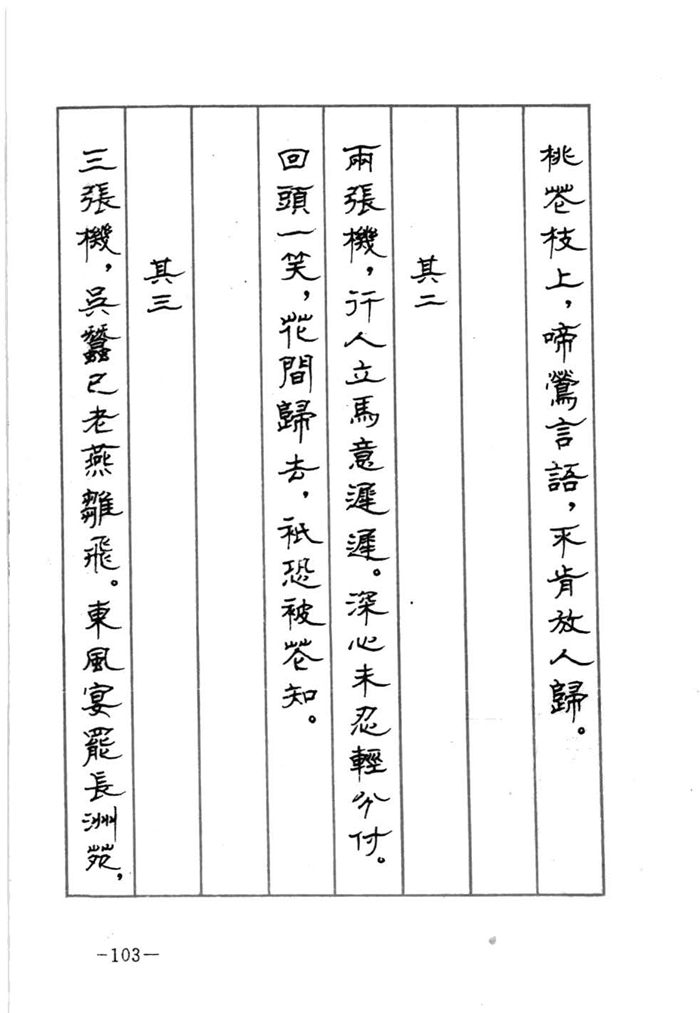 桃花枝上，啼鶯言語，不肯放人歸。
其二
兩張機，行人立馬意遲遲。深心未忍輕分付。
回頭一笑，花間歸去，衹恐被花知。
其三
三張機，吳蠶已老燕雛飛。東風宴罷長洲苑，
-103-